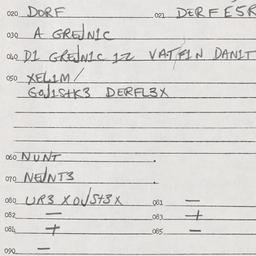 020 DORF 021 DERFESR
030 A GREJN1C
040 D1 GREJN1C 1Z VATF1N DAN1T
050 XEL1M/
GOJ1StK3 DERFL3X
060 NUNT .
070 NEJNT3 .
080 UR3 XOJSt3X 081 —
082 — 083 +
084 + 085 —
090 —